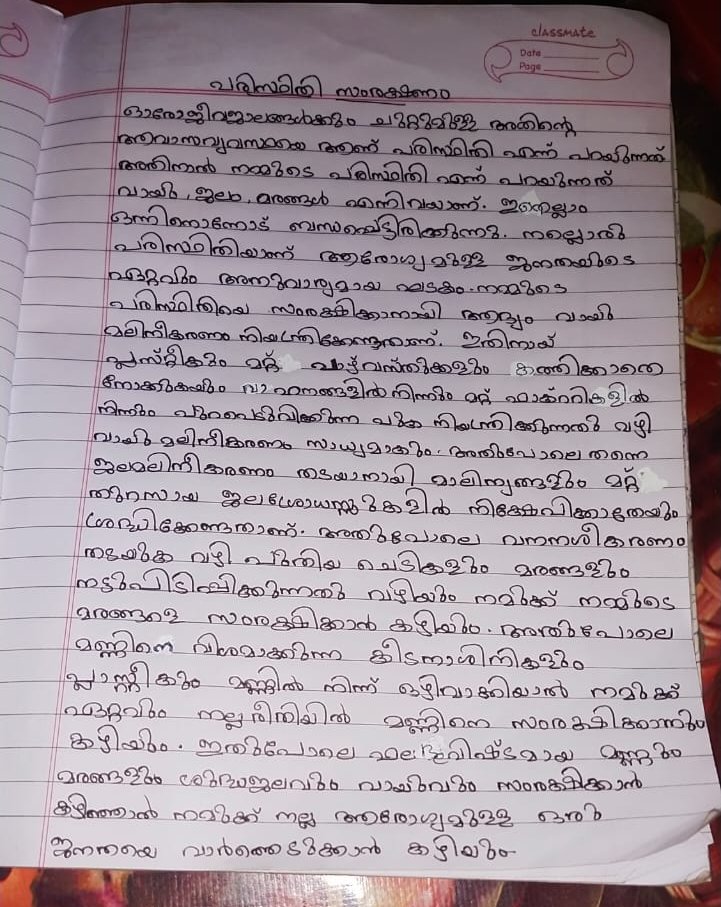 classmate
Date
Page
പരിസ്ഥിതി സംരക്ഷണം
ഓരോജീവജാലങ്ങൾക്കും ചുറ്റുമുള്ള അതിന്റെ
ആവാസവ്യവസ്ഥയെ ആണ് പരിസ്ഥിതി എന്ന് പറയുന്നത്
അതിനാൽ നമ്മുടെ പരിസ്ഥിതി എന്ന് പറയുന്നത്
വായു, ജലം, മരങ്ങൾ എന്നിവയാണ്. ഇതെല്ലാം
ഒന്നിനൊന്നോട് ബന്ധപ്പെട്ടിരിക്കുന്നു. നല്ലൊരു
പരിസ്ഥിതിയാണ് ആരോഗ്യമുള്ള ജനതയുടെ
ഏറ്റവും അനുവാര്യമായ ഘടകം. നമ്മുടെ
പരിസ്ഥിതിയെ സംരക്ഷിക്കാനായി ആദ്യം വായു
മലിനീകരണം നിയന്ത്രിക്കേണ്ടതാണ്. ഇതിനായ്
പ്ലാസ്റ്റിക്കും മറ്റ് പാഴ്‌വസ്തുക്കളും കത്തിക്കാതെ
നോക്കുകയും വാഹനങ്ങളിൽ നിന്നും മറ്റ് ഫാക്ടറികളിൽ
നിന്നും പുറപ്പെടുവിക്കുന്ന പുക നിയന്ത്രിക്കുന്നതു വഴി
വായു മലിനീകരണം സാധ്യമാകും. അതുപോലെ തന്നെ
ജലമലിനീകരണം തടയാനായി മാലിന്യങ്ങളും മറ്റ്
തുറസായ ജലശ്രോധസ്സുകളിൽ നിക്ഷേപിക്കാതെയും
ശ്രദ്ധിക്കേണ്ടതാണ്. അതുപോലെ വനനശീകരണം
തടയുക വഴി പുതിയ ചെടികളും മരങ്ങളും
നട്ടുപിടിപ്പിക്കുന്നതു വഴിയും നമുക്ക് നമ്മുടെ
മരങ്ങളെ സംരക്ഷിക്കാൻ കഴിയും. അതുപോലെ
മണ്ണിനെ വിശമാക്കുന്ന കീടനാശിനികളും
പ്ലാസ്റ്റിക്കും മണ്ണിൽ നിന്ന് ഒഴിവാക്കിയാൽ നമുക്ക്
ഏറ്റവും നല്ല രീതിയിൽ മണ്ണിനെ സംരക്ഷിക്കാനും
കഴിയും. ഇതുപോലെ ഫലഭൂവിഷ്ടമായ മണ്ണും
മരങ്ങളും ശുദ്ധജലവും വായുവും സംരക്ഷിക്കാൻ
കഴിഞ്ഞാൽ നമുക്ക് നല്ല ആരോഗ്യമുള്ള ഒരു
ജനതയെ വാർത്തെടുക്കാൻ കഴിയും